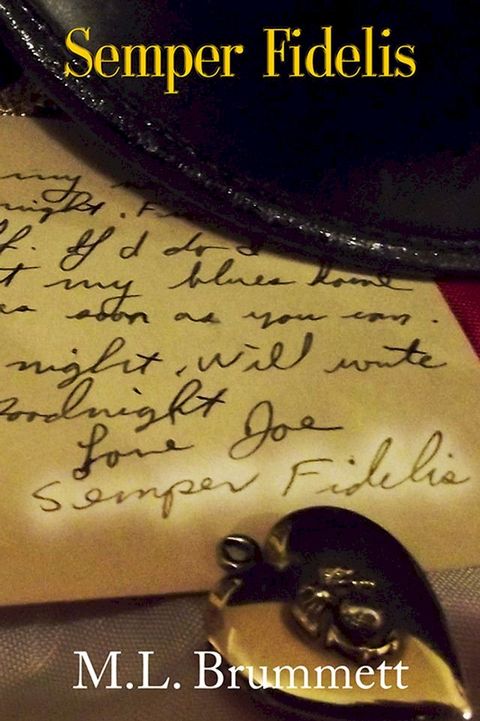 Semper Fidelis
my
night.
If I do
my blues home
as soon as you can.
night. Will write
Goodnight
Love Joe
Semper Fidelis
M.L. Brummett